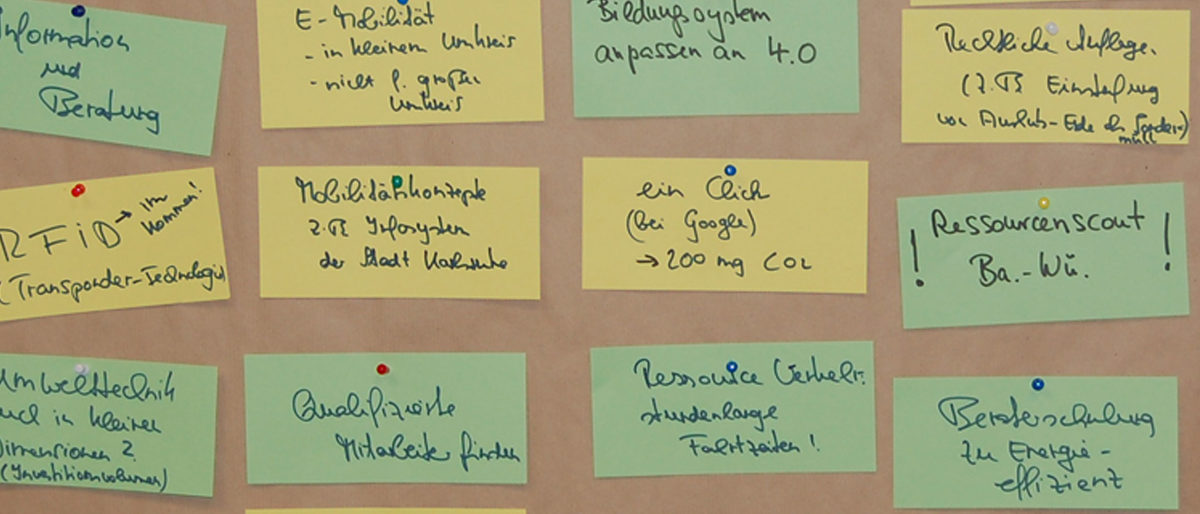 Information
und
Beratung
E-Mobilität
- in kleinem Umkreis
- nicht f. großen
Umkreis
Bildungssystem
anpassen an 4.0
Rechtliche Auflage.
(z.B Einstufung
von Aushub-Erde als Sonder-)
müll
RFiD → im
kommen!
(Transponder-Technologie)
Mobilitätskonzepte
z.B Infosystem
der Stadt Karlsruhe
ein Click
(bei Google)
→ 200 mg CO2
! Ressourcenscout !
Ba.-Wü.
Umwelttechnik
auch in kleinen
Dimensionen ?
(Investitionsvolumen)
Qualifizierte
Mitarbeiter finden
Ressource Verkehr:
stundenlange
Fahrtzeiten!
Beraterschulung
zu Energie-
effizienz